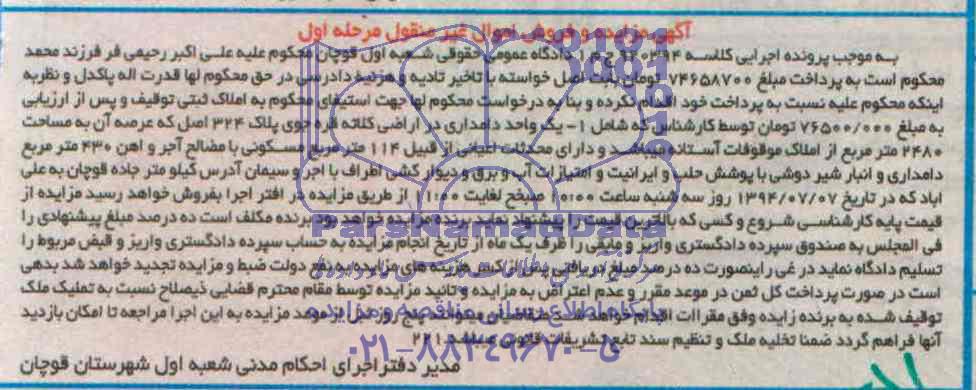 آگهی مزایده و فروش اموال غیر منقول مرحله اول
به موجب پرونده اجرایی کلاسه دادگاه عمومی حقوقی شعبه اول قوچان محکوم علیه علی اکبر رحیمی فر فرزند محمد
محکوم است به پرداخت مبلغ ۷۴۶۵۸۷۰۰ تومان بابت اصل خواسته با تاخیر تادیه و هزینه دادرسی در حق محکوم لها قدرت اله پاکدل و نظربه
اینکه محکوم علیه نسبت به پرداخت خود اقدام نکرده و بنا به درخواست محکوم لها جهت استیفای محکوم به املاک ثبتی توقیف و پس از ارزیابی
به مبلغ ۷۶۵۰۰/۰۰۰ تومان توسط کارشناس که شامل ۱- یک واحد دامداری در اراضی کلاته قره جوی پلاک ۳۲۴ اصل که عرصه آن به مساحت
۲۴۸۰ متر مربع از املاک موقوفات آستانه میباشد و دارای محدثات اعیانی از قبیل ۱۱۴ متر مربع مسکونی با مصالح آجر و اهن ۴۳۰ متر مربع
دامداری و انبار شیر دوشی با پوشش حلب و ایرانیت و امتیازات آب و برق و دیوار کشی اطراف با اجر و سیمان آدرس کیلو متر جاده قوچان به علی
اباد که در تاریخ ۱۳۹۴/۰۷/۰۷ روز سه شنبه ساعت ۱۰:۰۰ صبح لغایت ۱۱:۰۰ از طریق مزایده در افتر اجرا بفروش خواهد رسید مزایده از
قیمت پایه کارشناسی شروع و کسی که بالاترین قیمت را پیشنهاد نماید برنده مزایده خواهد بود برنده مکلف است ده درصد مبلغ پیشنهادی را
فی المجلس به صندوق سپرده دادگستری واریز و مابقی را ظرف یک ماه از تاریخ انجام مزایده به حساب سپرده دادگستری واریز و قبض مربوط را
تسلیم دادگاه نماید در غی راینصورت ده درصد مبلغ دریافتی پس از کسر هزینه های مزایده به نفع دولت ضبط و مزایده تجدید خواهد شد بدهی
است در صورت پرداخت کل ثمن در موعد مقرر و عدم اعتراض به مزایده و تائید مزایده توسط مقام محترم قضایی ذیصلاح نسبت به تملیک ملک
توقیف شده به برنده زایده وفق مقراات اقدام خواهد شد متقاضیان میتوانند پنج روز قبل از موعد مزایده به این اجرا مراجعه تا امکان بازدید
آنها فراهم گردد ضمنا تخلیه ملک و تنظیم سند تابع تشریفات قانونی میباشد ۲۲۱
مدیر دفتر اجرای احکام مدنی شعبه اول شهرستان قوچان
ParsNamadData
پایگاه اطلاع رسانی مناقصه و مزایده
۰۲۱-۸۸۳۴۹۶۷۰-۵